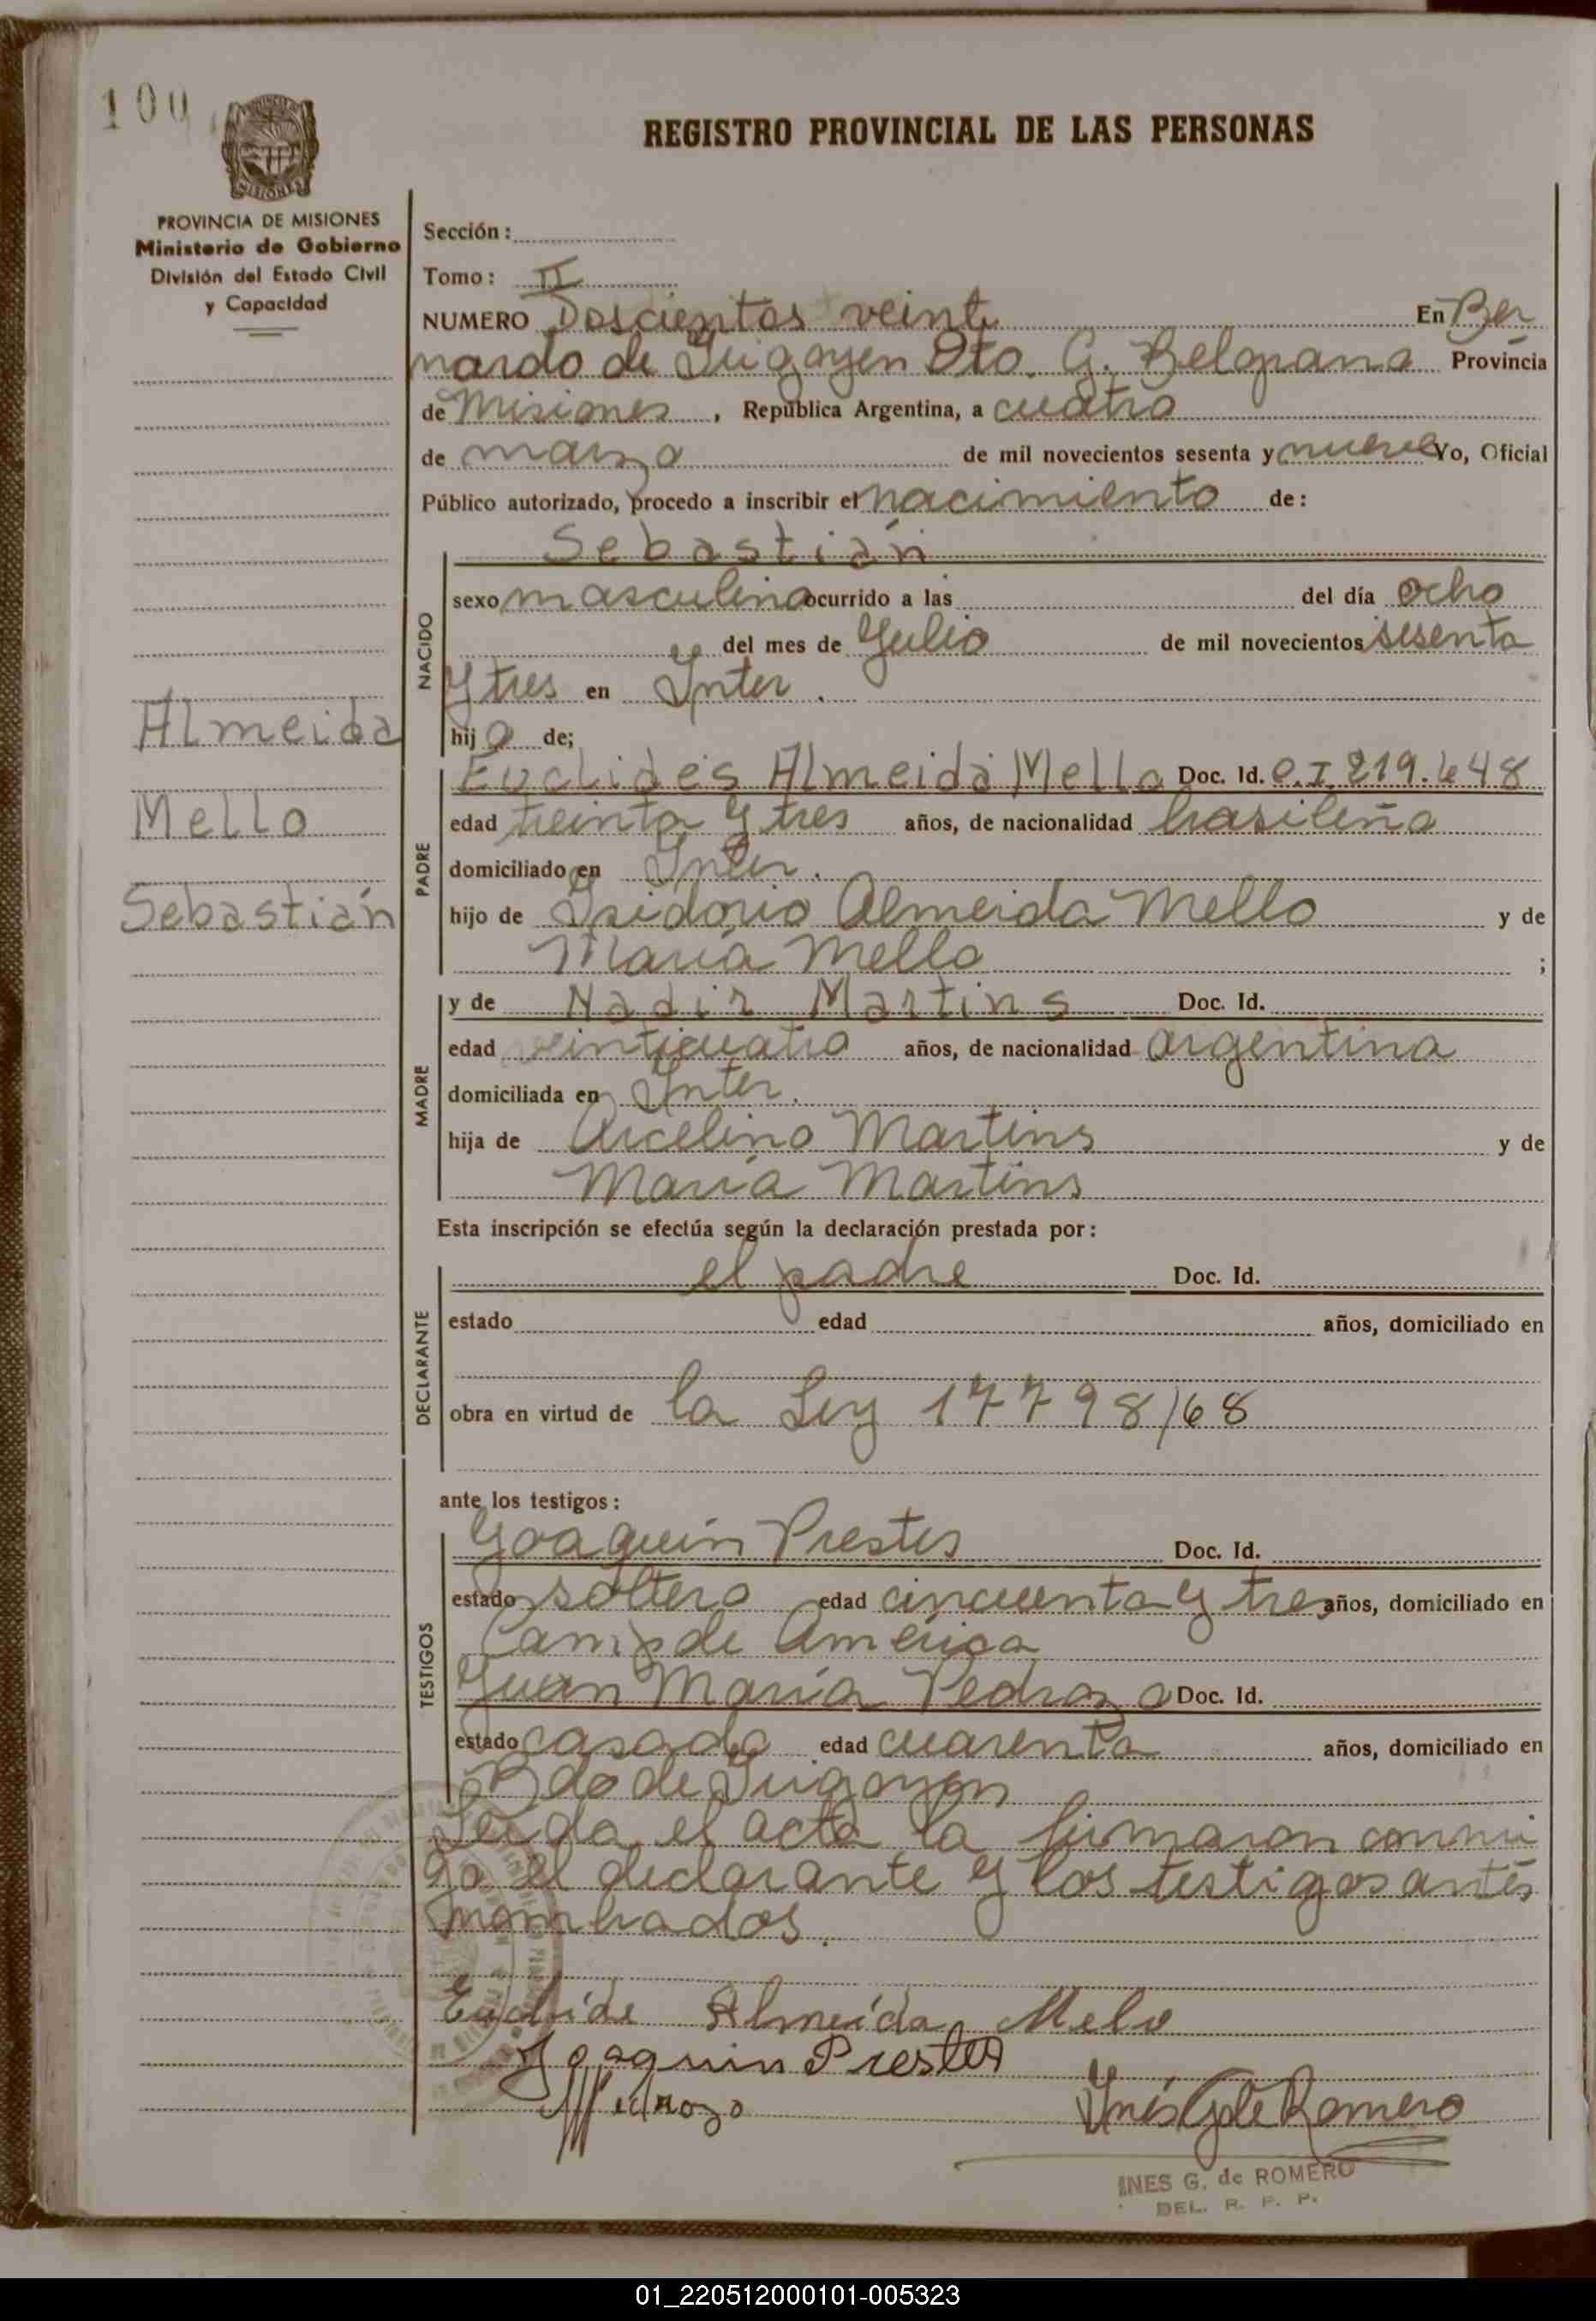 100
REGISTRO PROVINCIAL DE LAS PERSONAS
MISIONES
PROVINCIA DE MISIONES
Ministerio de Gobierno
División del Estado Civil
y Capacidad
Sección:
Tomo: II
NUMERO Doscientos veinte En Ber
nardo de Irigoyen Dto. G. Belgrano Provincia
de Misiones, República Argentina, a cuatro
de marzo de mil novecientos sesenta y nueve Yo, Oficial
Público autorizado, procedo a inscribir el nacimiento de:
Sebastián
NACIDO
sexo masculino ocurrido a las del día ocho
del mes de Julio de mil novecientos sesenta
y tres en Inter.
hijo de;
Almeida
Mello
Sebastián
PADRE
Euclides Almeida Mello Doc. Id. C.I 219.648
edad treinta y tres años, de nacionalidad brasileña
domiciliado en Inter.
hijo de Isidorio Almeida Mello y de
María Mello ;
MADRE
y de Nadir Martins Doc. Id.
edad veinticuatro años, de nacionalidad argentina
domiciliada en Inter.
hija de Arcelino Martins y de
María Martins
Esta inscripción se efectúa según la declaración prestada por:
DECLARANTE
el padre Doc. Id.
estado edad años, domiciliado en
obra en virtud de la Ley 17798/68
ante los testigos:
TESTIGOS
Joaquin Prestes Doc. Id.
estado soltero edad cincuenta y tres años, domiciliado en
Camp de América
Juan María Pedrozo Doc. Id.
estado casado edad cuarenta años, domiciliado en
Bdo de Irigoyen
Leida el acta la firmaron conmi
go el declarante y los testigos antes
nombrados.
Euclide Almeida Melo
Joaquin Prestes
Pedrozo
Inés G de Romero
INES G. de ROMERO
DEL. R. P. P.
01_220512000101-005323